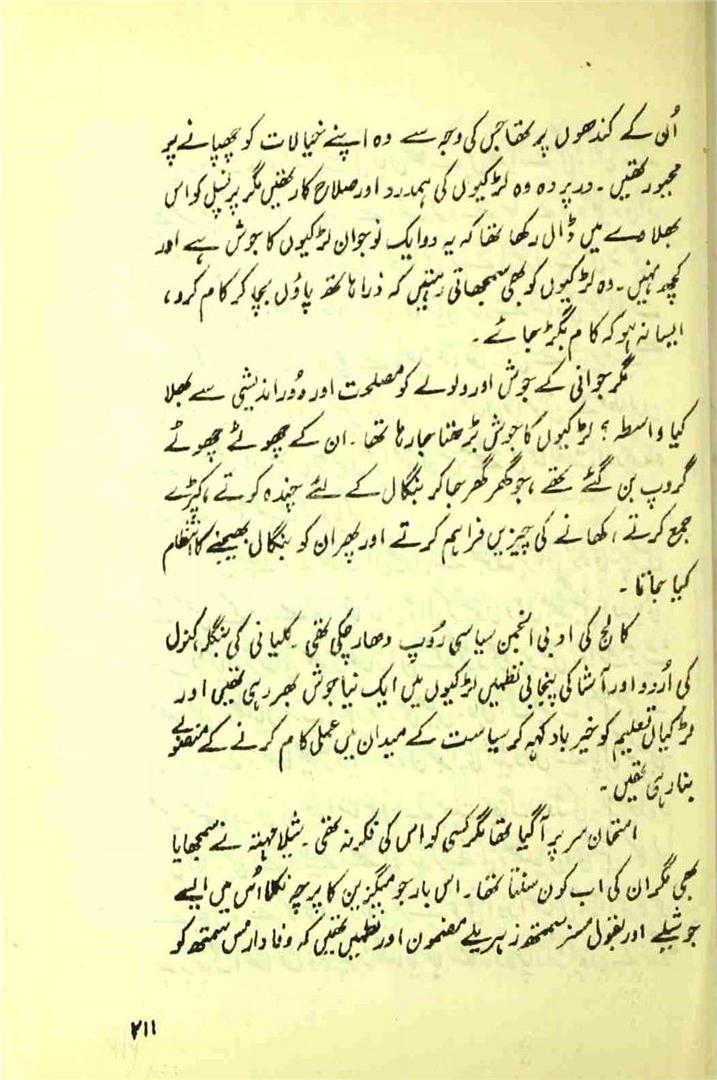 اُن کے کندھوں پر تھا جس کی وجہ سے وہ اپنے خیالات کو چھپانے پر
مجبور تھیں۔ در پردہ وہ لڑکیوں کی ہمدرد اور صلاح کار تھیں مگر پرنسپل کو اس
بھلاوے میں ڈال رکھا تھا کہ یہ دو ایک نوجوان لڑکیوں کا جوش ہے اور
کچھ نہیں۔ وہ لڑکیوں کو بھی سمجھاتی رہتیں کہ ذرا ہاتھ پاؤں بچا کر کام کرو،
ایسا نہ ہو کہ کام بگڑ جائے۔
مگر جوانی کے جوش اور ولولے کو مصلحت اور دُور اندیشی سے بھلا
کیا واسطہ؟ لڑکیوں کا جوش بڑھتا جا رہا تھا۔ ان کے چھوٹے چھوٹے
گروپ بن گئے تھے، جو گھر گھر جا کر بنگال کے لئے چندہ کرتے، کپڑے
جمع کرتے، کھانے کی چیزیں فراہم کرتے اور پھر ان کو بنگال بھیجنے کا انتظام
کیا جاتا۔
کالج کی ادبی انجمن سیاسی رُوپ دھار چکی تھی۔ کلیانی کی بنگلہ، کنول
کی اُردو اور آشا کی پنجابی نظمیں لڑکیوں میں ایک نیا جوش بھر رہی تھیں اور
لڑکیاں تعلیم کو خیر باد کہہ کر سیاست کے میدان میں عملی کام کرنے کے منصوبے
بنا رہی تھیں۔
امتحان سر پر آ گیا تھا مگر کسی کو اس کی فکر نہ تھی۔ شیلا مہتہ نے سمجھایا
بھی مگر ان کی اب کون سنتا تھا۔ اس بار جو میگزین کا پرچہ نکلا اُس میں ایسے
جوشیلے اور بقول مسز سمتھ زہریلے مضمون اور نظمیں تھیں کہ وفادار مس سمتھ کو
۲۱۱